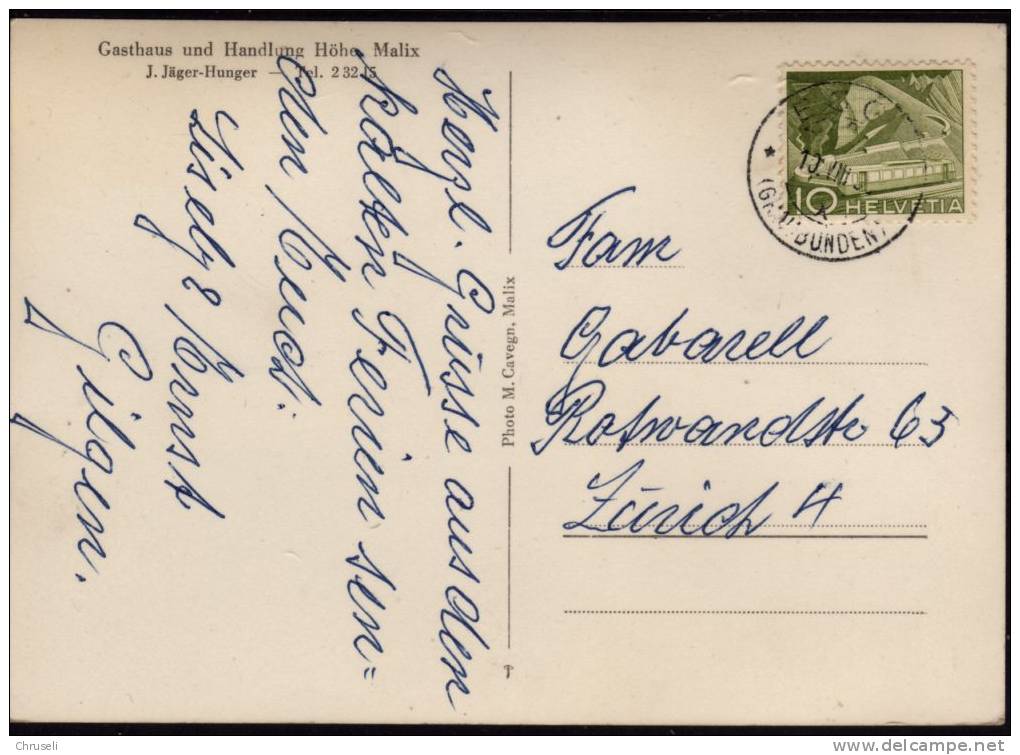 Gasthaus und Handlung Höhe, Malix
J. Jäger-Hunger — Tel. 2 32 15
Herzl. Grüsse aus den
kalten Ferien sen=
den Euch.
Lisely & Ernst
Gilgen.
Photo M. Cavegn, Malix
10 HELVETIA
(GRAUBÜNDEN)
Fam
Gabarell
Rotwandstr 63
Zürich 4
Chruseli
www.delcampe.net